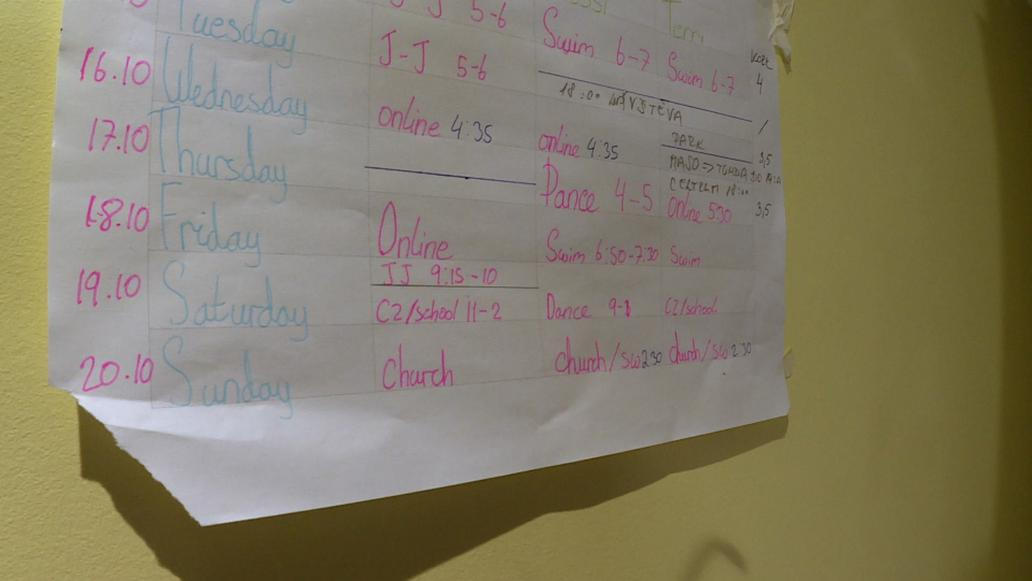 Tuesday J-J 5-6 Terri
16.10 Wednesday J-J 5-6 Swim 6-7 Swim 6-7 4
18:00 NÁVŠTĚVA
17.10 Thursday online 4:35 online 4:35 PARK 3,5
MASO =>
18:00
Dance 4-5 Online 5:30 3,5
18.10 Friday Online Swim 6:50-7:30 Swim
19.10 Saturday JJ 9:15-10
CZ/school 11-2 Dance CZ/school
20.10 Sunday Church church/sw 2:30 church/sw 2:30